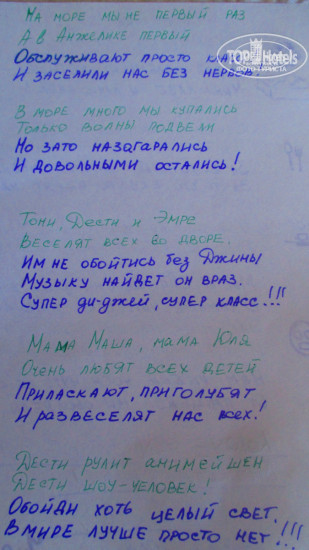 На море мы не первый раз
А в Анжелике первый
Обслуживают просто класс
И заселили нас без нервов.
TOP Hotels
ФОТО ТУРИСТА
В море много мы купались
Только волны подвели
Но зато назагарались
И довольными остались!
Тони, Дести и Эмре
Веселят всех во дворе.
Им не обойтись без Джины
Музыку найдет он враз.
Супер ди-джей, супер класс!!!
Мама Маша, мама Юля
Очень любят всех детей
Приласкают, приголубят
И развеселят нас всех!
Дести рулит анимейшен
Дести шоу-человек!
Обойди хоть целый свет,
В мире лучше просто нет!!!